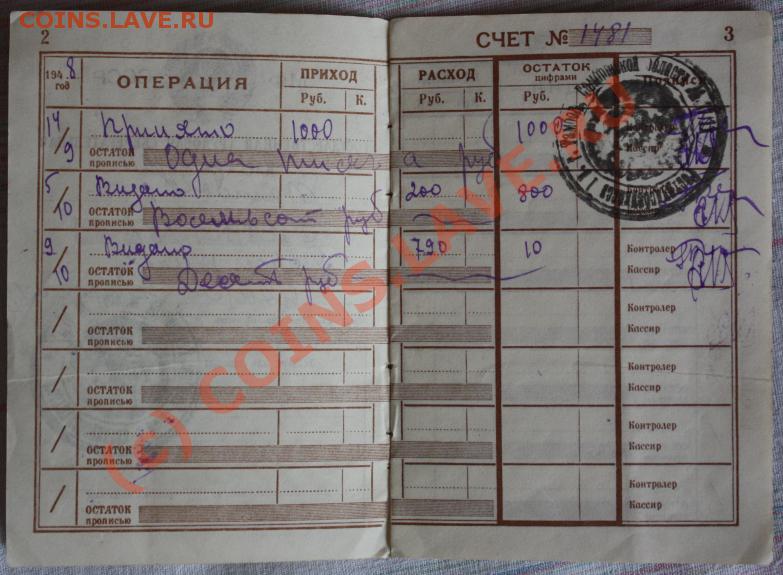 COINS.LAVE.RU
2
СЧЕТ № 1481
3
1948 год
ОПЕРАЦИЯ
ПРИХОД
Руб. К.
РАСХОД
Руб. К.
ОСТАТОК цифрами
Руб.
14/9 Принято 1000 1000
ОСТАТОК прописью Одна тысяча руб
Кассир
5/10 Видано 200 800
ОСТАТОК прописью Восемьсот руб
9/10 Видано 790 10 Контролер
ОСТАТОК прописью Десять руб Кассир
/ Контролер
ОСТАТОК прописью Кассир
/ Контролер
ОСТАТОК прописью Кассир
/ Контролер
ОСТАТОК прописью Кассир
/ Контролер
ОСТАТОК прописью Кассир
(c) COINS.LAVE.RU